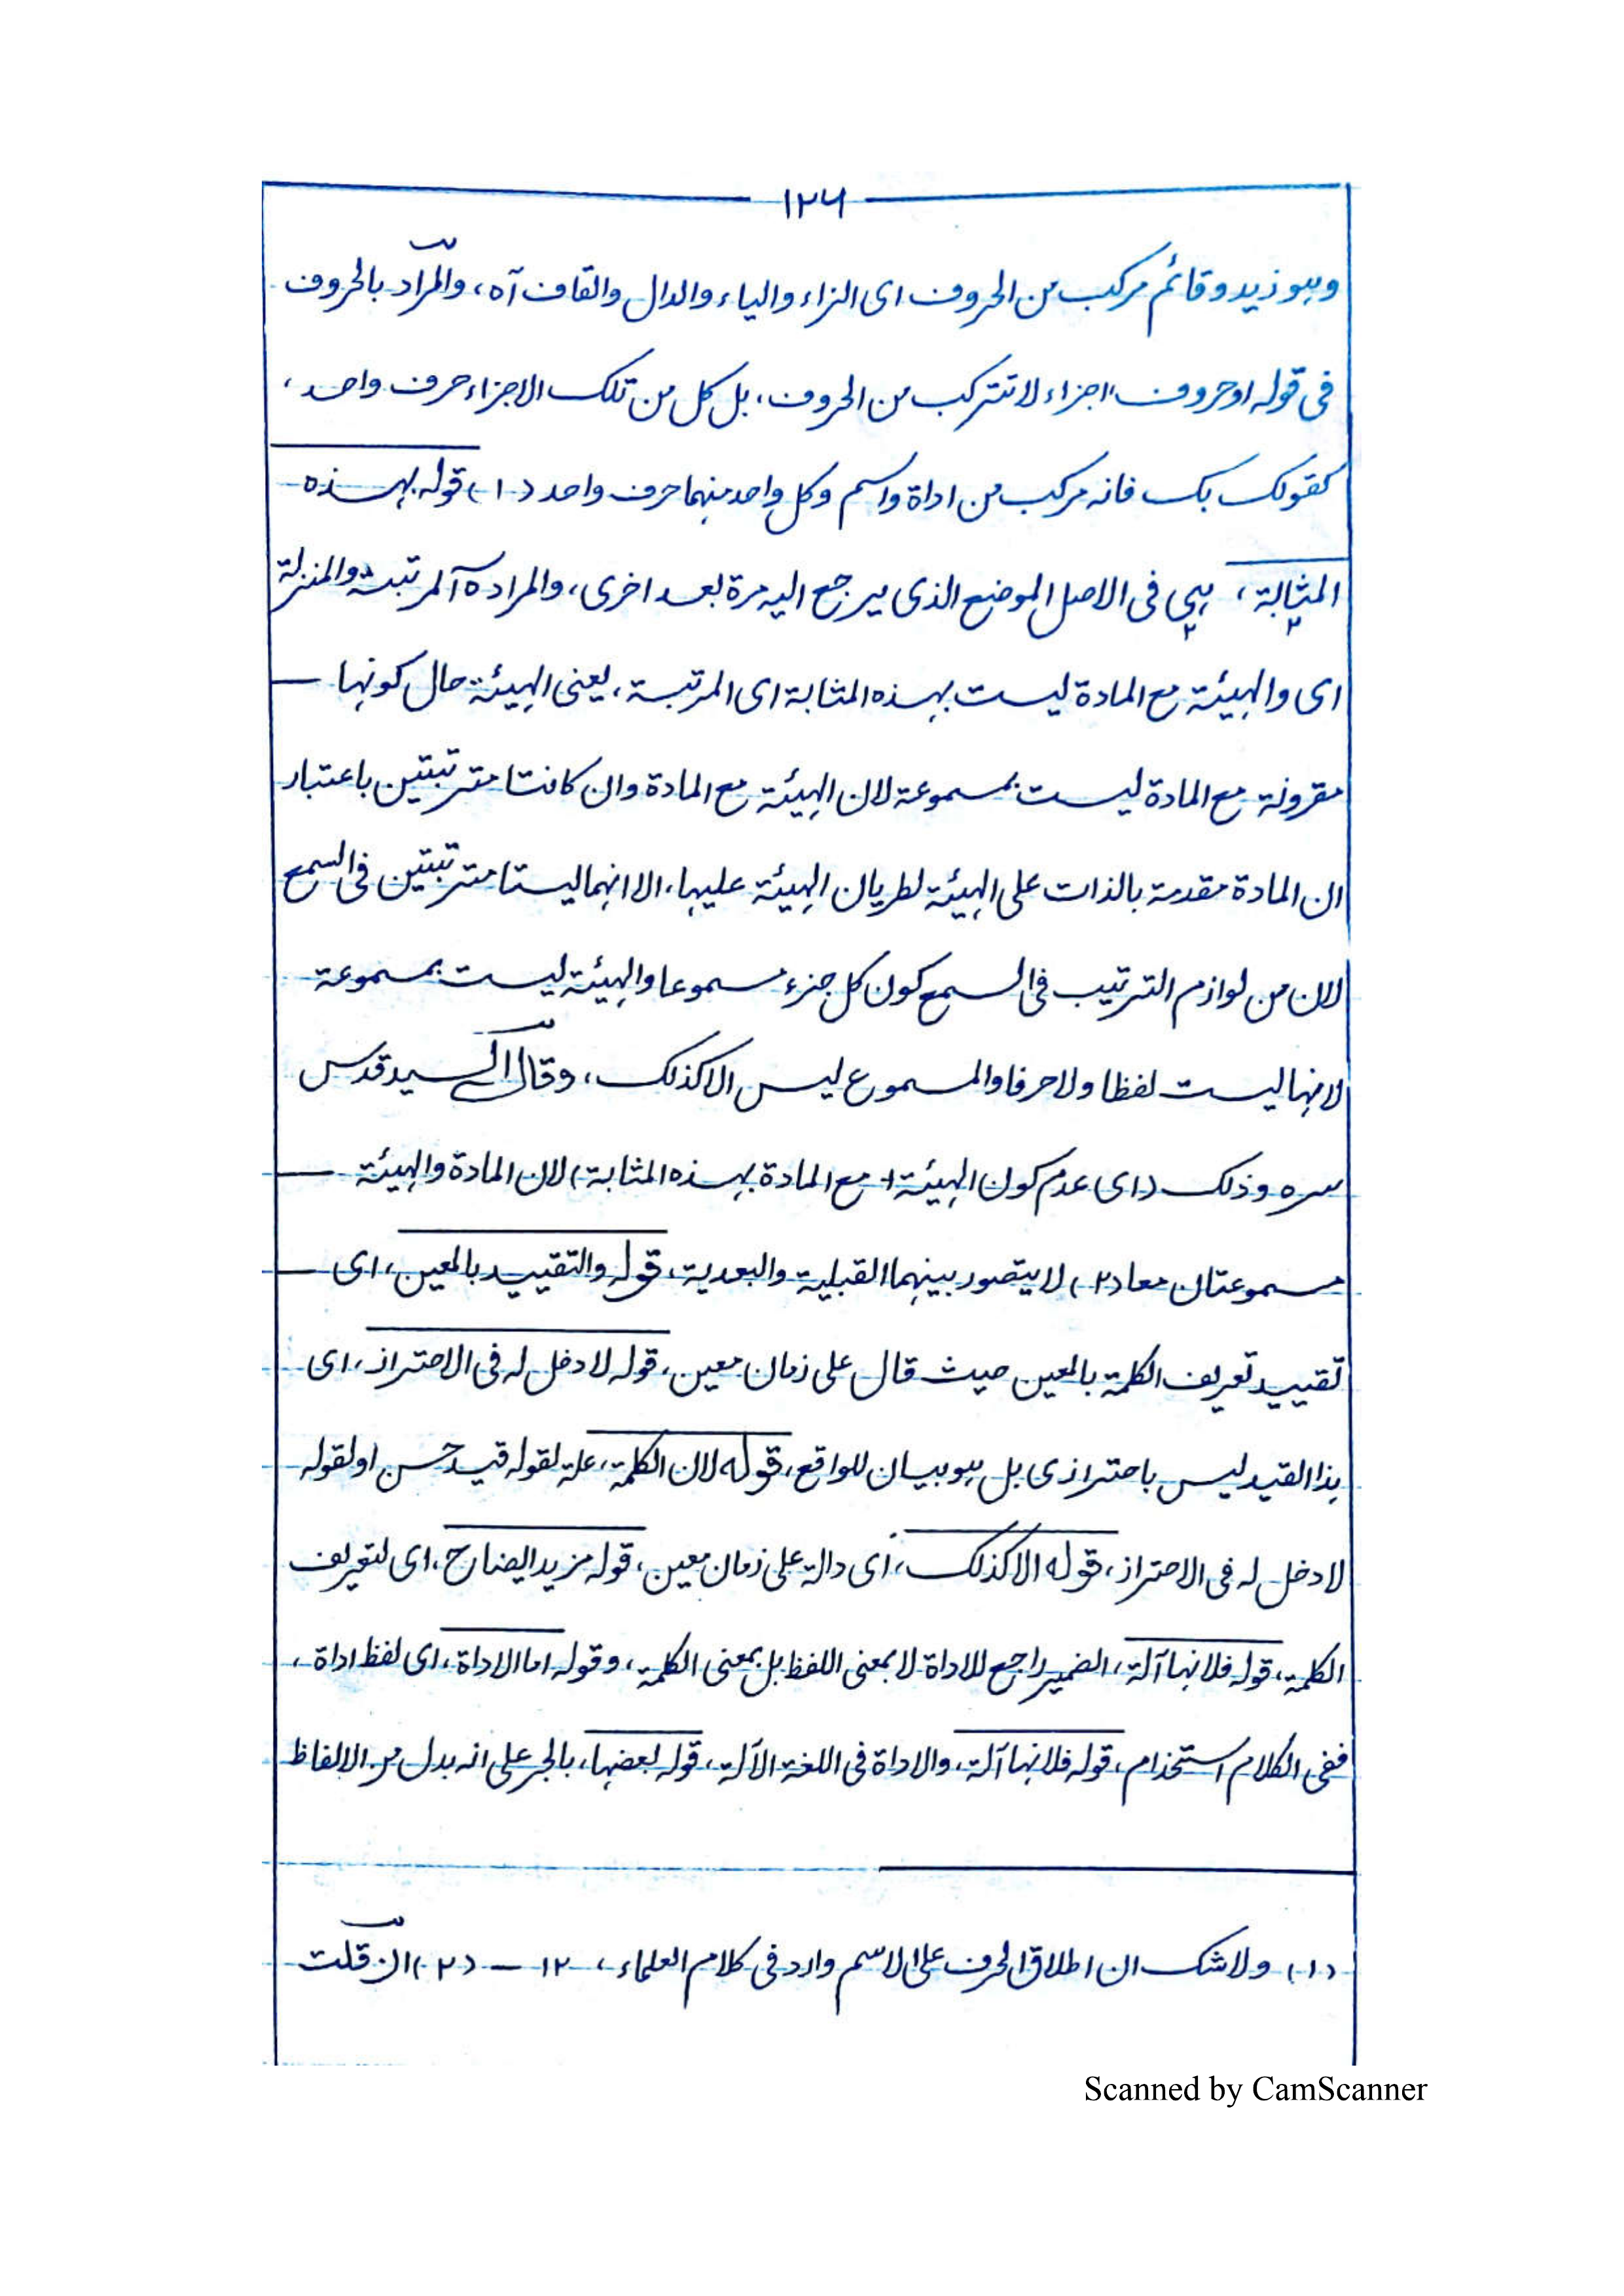 ۱۲۶
وهو زيد وقائم مركب من الحروف اى الزاء والياء والدال والقاف آه، والمراد بالحروف
فى قوله او حروف اجزاء لا تتركب من الحروف، بل كل من تلك الاجزاء حرف واحد،
كقولك بك فانه مركب من اداة واسم وكل واحد منهما حرف واحد (۱) قوله بهذه
المثابة، هى فى الاصل الموضع الذى يرجع اليه مرة بعد اخرى، والمراد ه المرتبة والمنزلة
اى والهيئة مع المادة ليست بهذه المثابة اى المرتبة، يعنى الهيئة حال كونها
مقرونة مع المادة ليست بمسموعة لان الهيئة مع المادة وان كانتا مترتبتين باعتبار
ان المادة مقدمة بالذات على الهيئة لطريان الهيئة عليها، الا انهما ليستا مترتبتين فى السمع
لان من لوازم الترتيب فى السمع كون كل جزء مسموعا والهيئة ليست بمسموعة
لانها ليست لفظا ولا حرفا والمسموع ليس الا كذلك، وقال السيد قدس
سره وذلك (اى عدم كون الهيئة مع المادة بهذه المثابة) لان المادة والهيئة
مسموعتان معا (۲) لا يتصور بينهما القبلية والبعدية، قوله والتقييد بالمعين، اى
تقييد تعريف الكلمة بالمعين حيث قال على زمان معين، قوله لا دخل له فى الاحتراز، اى
هذا القيد ليس باحترازى بل هو بيان للواقع، قوله لان الكلمة، علة لقوله قيد حسن او لقوله
لا دخل له فى الاحتراز، قوله الا كذلك، اى دالة على زمان معين، قوله مزيد ايضاح، اى لتعريف
الكلمة، قوله فلانها آلة، الضمير راجع للاداة لا بمعنى اللفظ بل بمعنى الكلمة، وقوله اما الاداة، اى لفظ اداة،
ففى الكلام استخدام، قوله فلانها آلة، والاداة فى اللغة الآلة، قوله بعضها، بالجر على انه بدل من الالفاظ
(۱) ولا شك ان اطلاق الحرف على الاسم وارد فى كلام العلماء، ۱۲ — (۲) ان قلت
Scanned by CamScanner